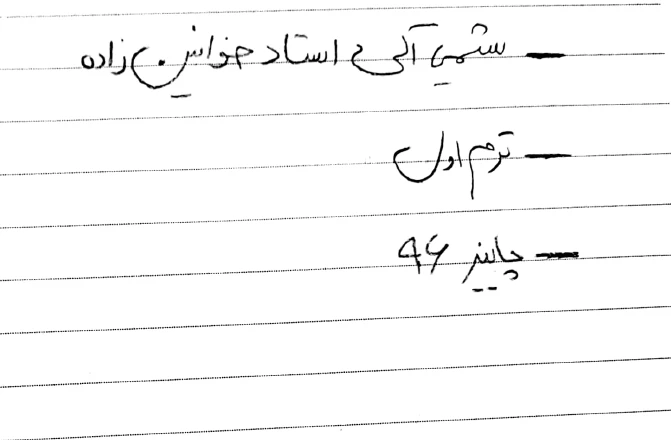 — شیمی آلی ۲ استاد خوانین زاده
— ترم اول
— پاییز 96